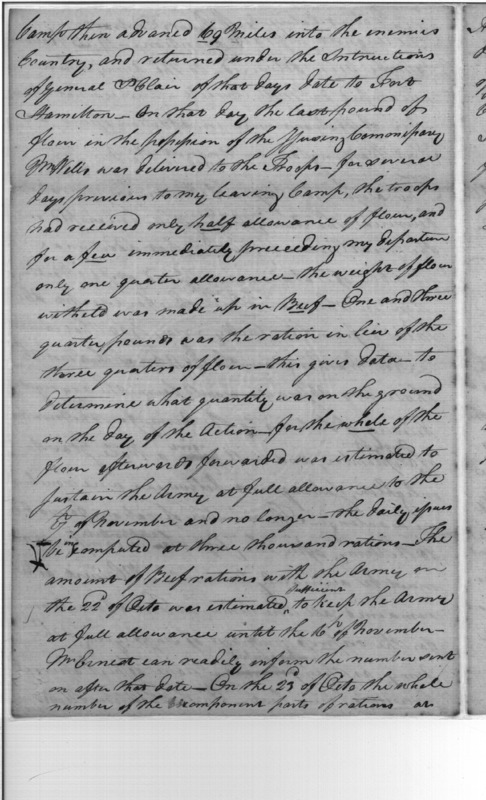 Camp then advanced 69 Miles into the enemies
Country, and returned under the Instructions
of General St Clair of that days date to Fort
Hamilton – On that day the last pound of
flour in the possession of the Issuing Commissary
Mr Wells was delivered to the Troops – for several
days previous to my leaving Camp, the troops
had received only half allowance of flour, and
for a few immediately preceeding my departure
only one quarter allowance – the weight of flour
witheld was made up in Beef – One and three
quarter pounds was the ration in lieu of the
three quarters of flour – this gives data – to
determine what quantity was on the ground
on the day of the Action – for the whole of the
flour afterwards forwarded was estimated to
sustain the Army at full allowance to the
of November and no longer – the daily issues
being computed at three thousand rations – The
amount of Beef rations with the Army on
the 22d of Octo was estimated sufficient to keep the Army
at full allowance until the 6th of November –
Mr Ernest can readily inform the number sent
on after that date – On the 23d of Octo the whole
number of the component parts of rations as